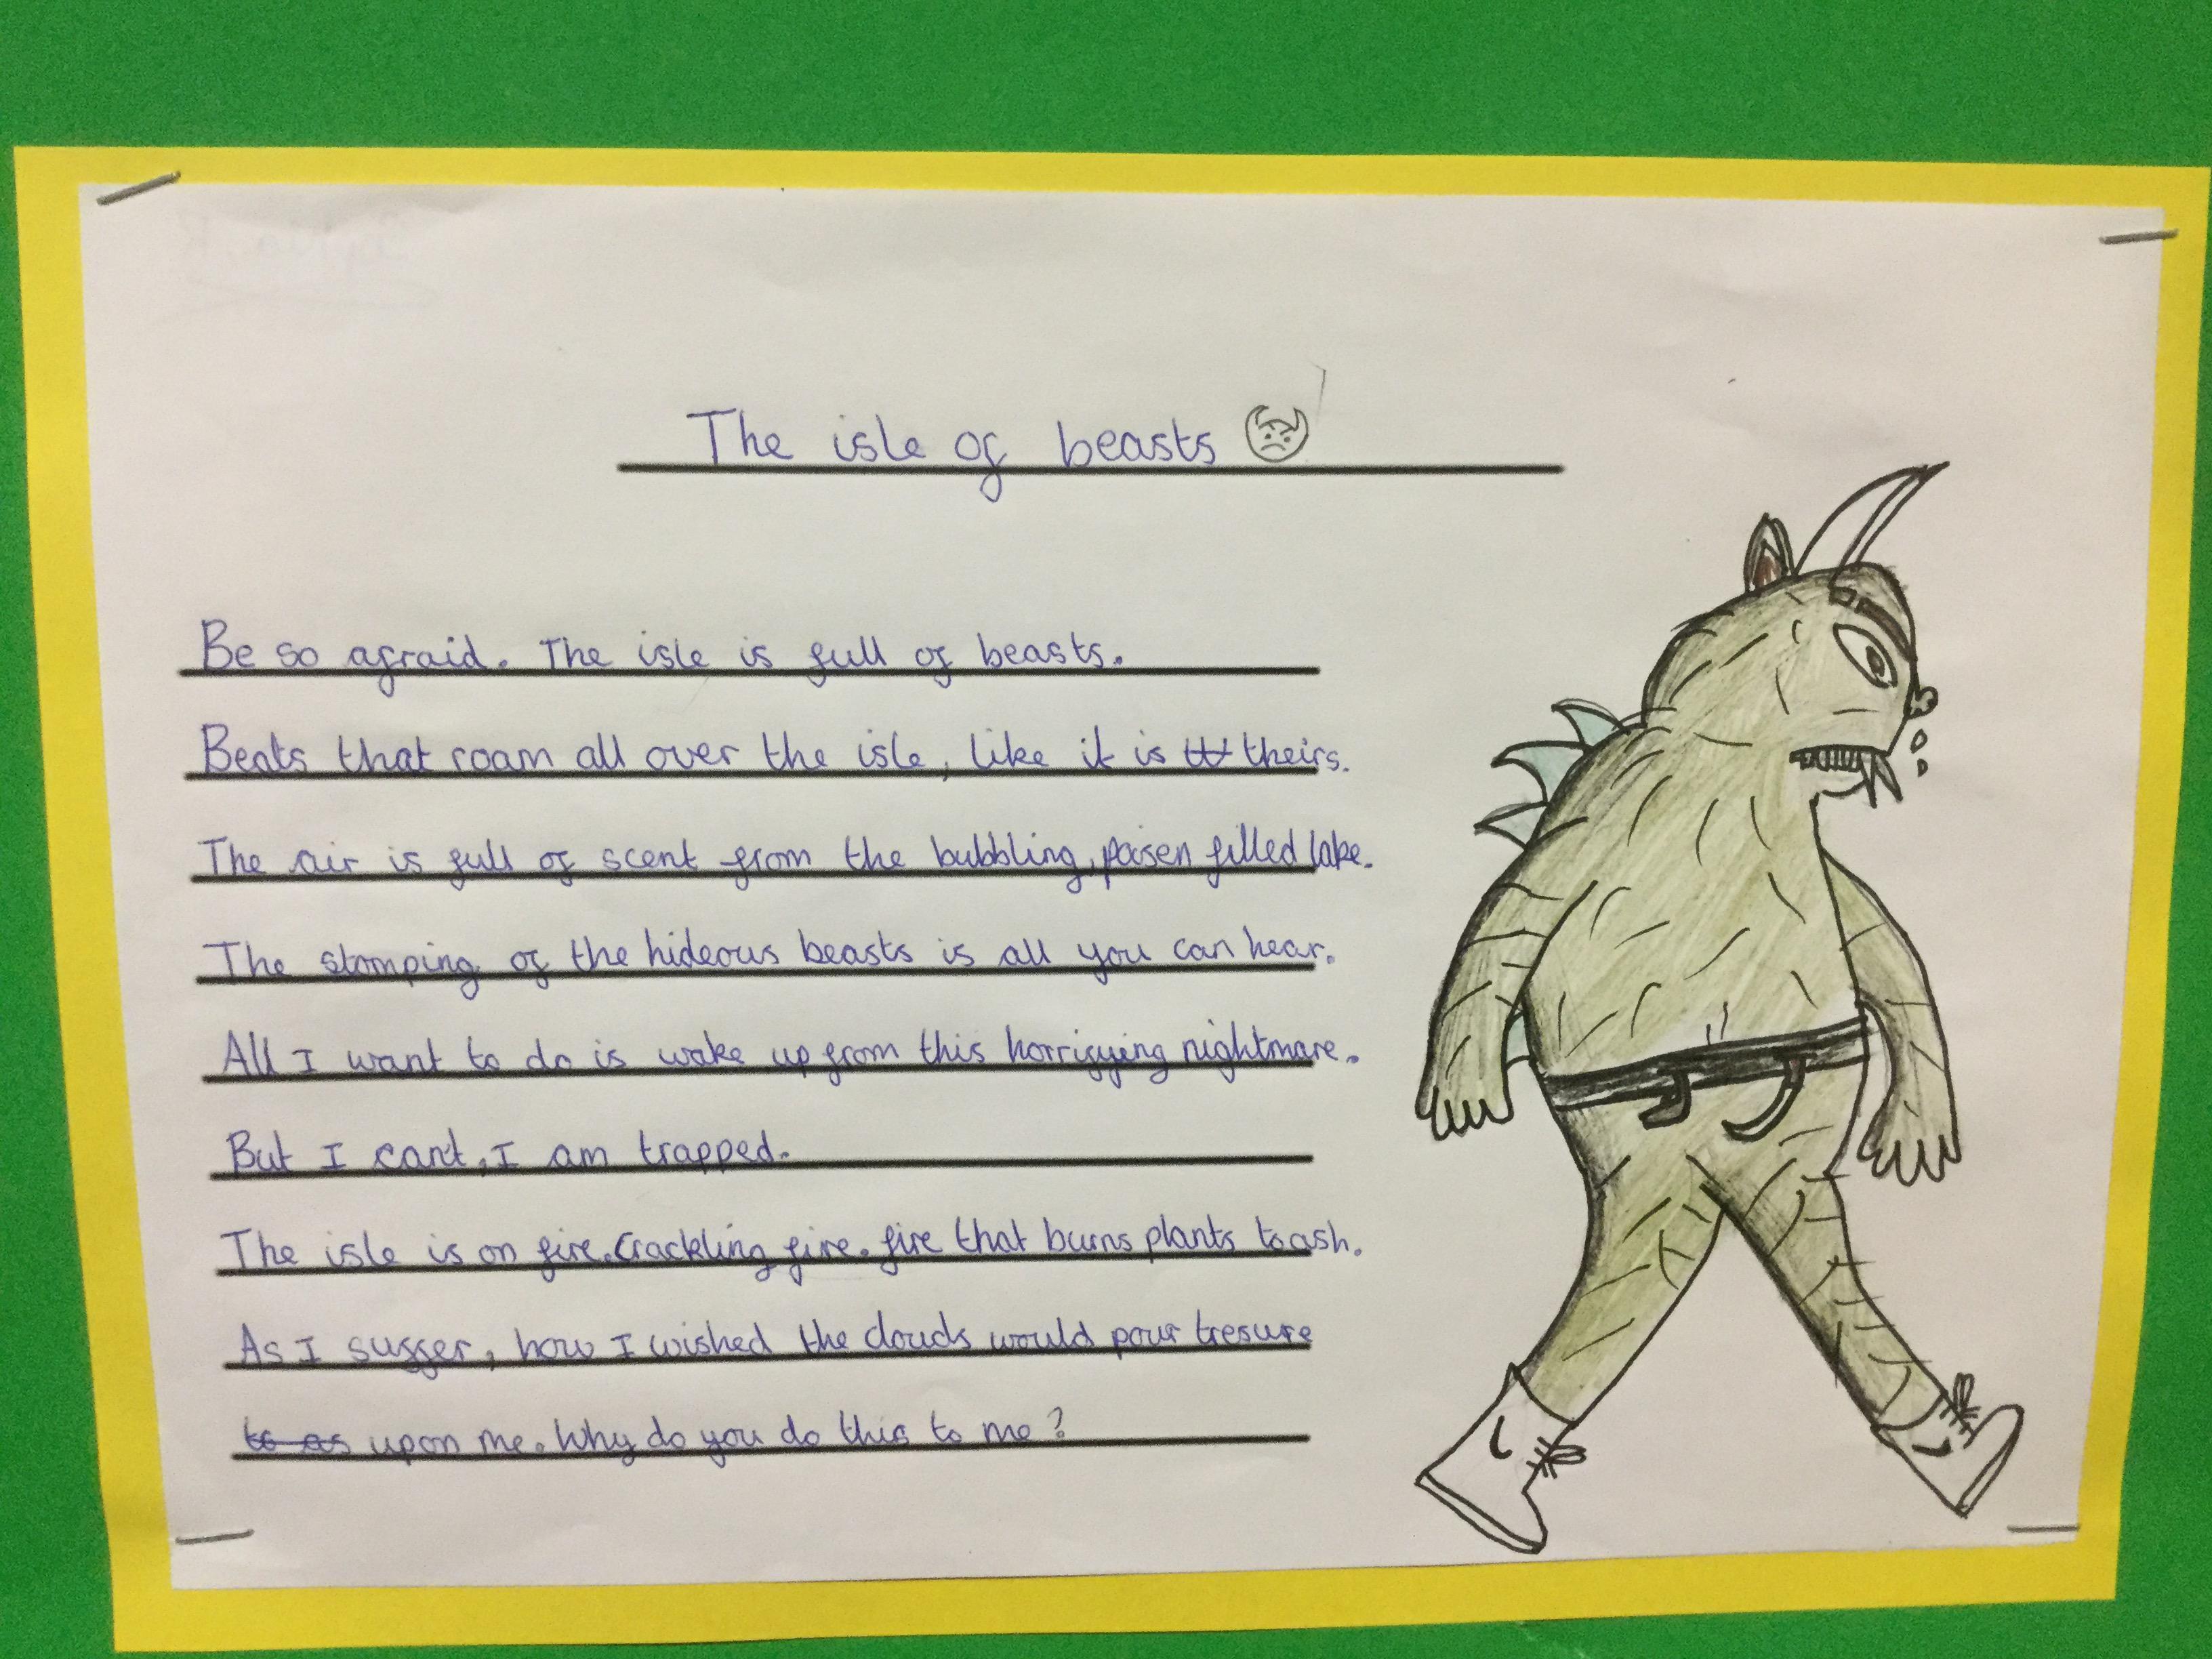 The isle of beasts
Be so afraid. The isle is full of beasts.
Beats that roam all over the isle, like it is theirs.
The air is full of scent from the bubbling, poisen filled lake.
The stomping of the hideous beasts is all you can hear.
All I want to do is wake up from this horrifying nightmare.
But I cant, I am trapped.
The isle is on fire. Crackling fire. fire that burns plants to ash.
As I suffer, how I wished the clouds would pour tresure
upon me. Why do you do this to me?